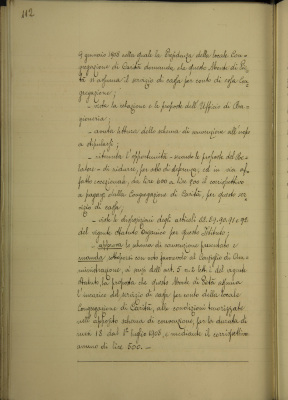 112
9 gennaio 1903 colla quale la Presidenza della locale Con-
gregazione di Carità domanda che questo Monte di Pie-
tà si assuma il servizio di cassa per conto di essa Con-
gregazione;
- vista la relazione e le proposte dell'Ufficio di Ra-
gioneria;
- avuta lettura dello schema di convenzione all'uopo
- ritenuta l'opportunità - secondo le proposte del Re-
latore - di ridurre, per atto di deferenza, ed in via af-
fatto eccezionale, da lire 600 a lire 500 il corrispettivo
a pagarsi dalla Congregazione di Carità, per questo ser-
vizio di cassa;
- viste le disposizioni degli articoli
del vigente Statuto Organico per questo Istituto;
- approva lo schema di convenzione
manda
ministrazione, ai sensi dell'art. 5 del vigente
Statuto, la proposta che questo Monte di Pietà assuma
l'incarico del servizio di cassa per conto della locale
Congregazione di Carità, alle condizioni
nell'apposito schema di convenzione, per la durata di
mesi 18 dal 1° luglio 1903, e mediante il corrispettivo
annuo di lire 500. -